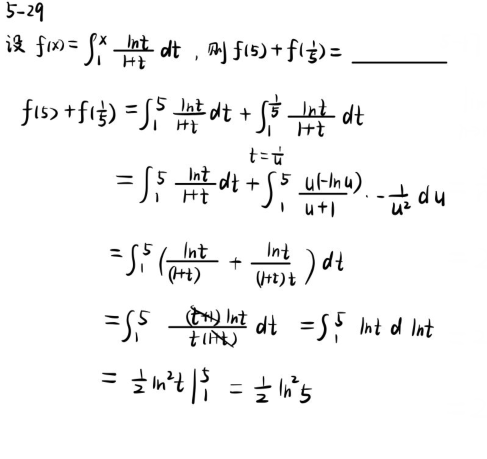 5-29
设 f(x) = ∫₁ˣ lnt/(1+t) dt , 则 f(5) + f(1/5) = ________
f(5) + f(1/5) = ∫₁⁵ lnt/(1+t) dt + ∫₁^(1/5) lnt/(1+t) dt
t = 1/u
= ∫₁⁵ lnt/(1+t) dt + ∫₁⁵ u(-lnu)/(u+1) · -1/u² du
= ∫₁⁵ ( lnt/(1+t) + lnt/((1+t)t) ) dt
= ∫₁⁵ (t+1)lnt/(t(1+t)) dt = ∫₁⁵ lnt d lnt
= 1/2 ln²t |₁⁵ = 1/2 ln²5